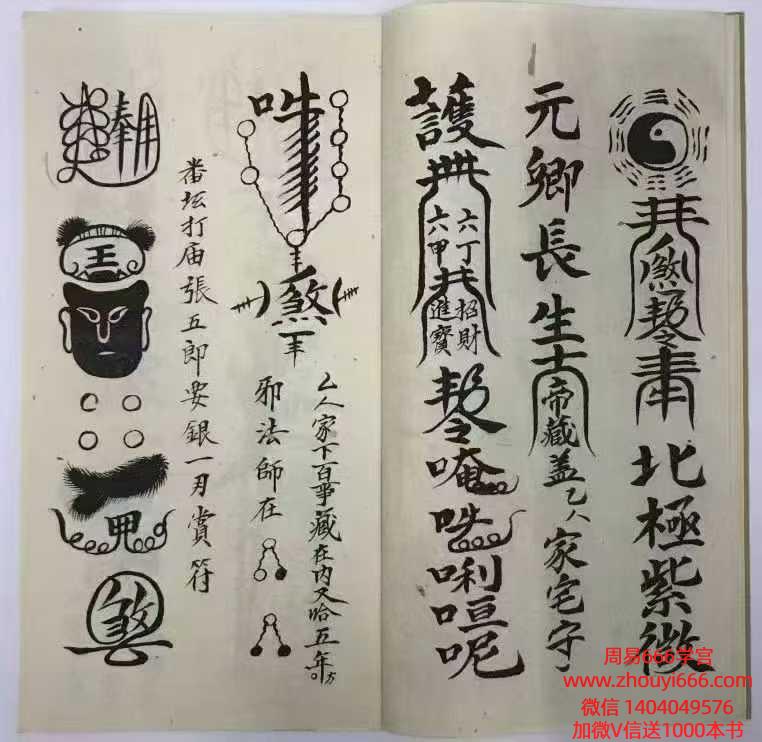 煞
北極紫微
元卿長生士帝藏蓋乙人家宅守
護
六丁
六甲
招財
進寶
唵
唎
呢
煞
乙人家下百事藏在内又哈五年方
邪法師在
番坛打庙張五郎要銀一刀賞符
奉
王
甲
煞
周易666学宫
www.zhouyi666.com
微信 1404049576
加微V信送1000本书